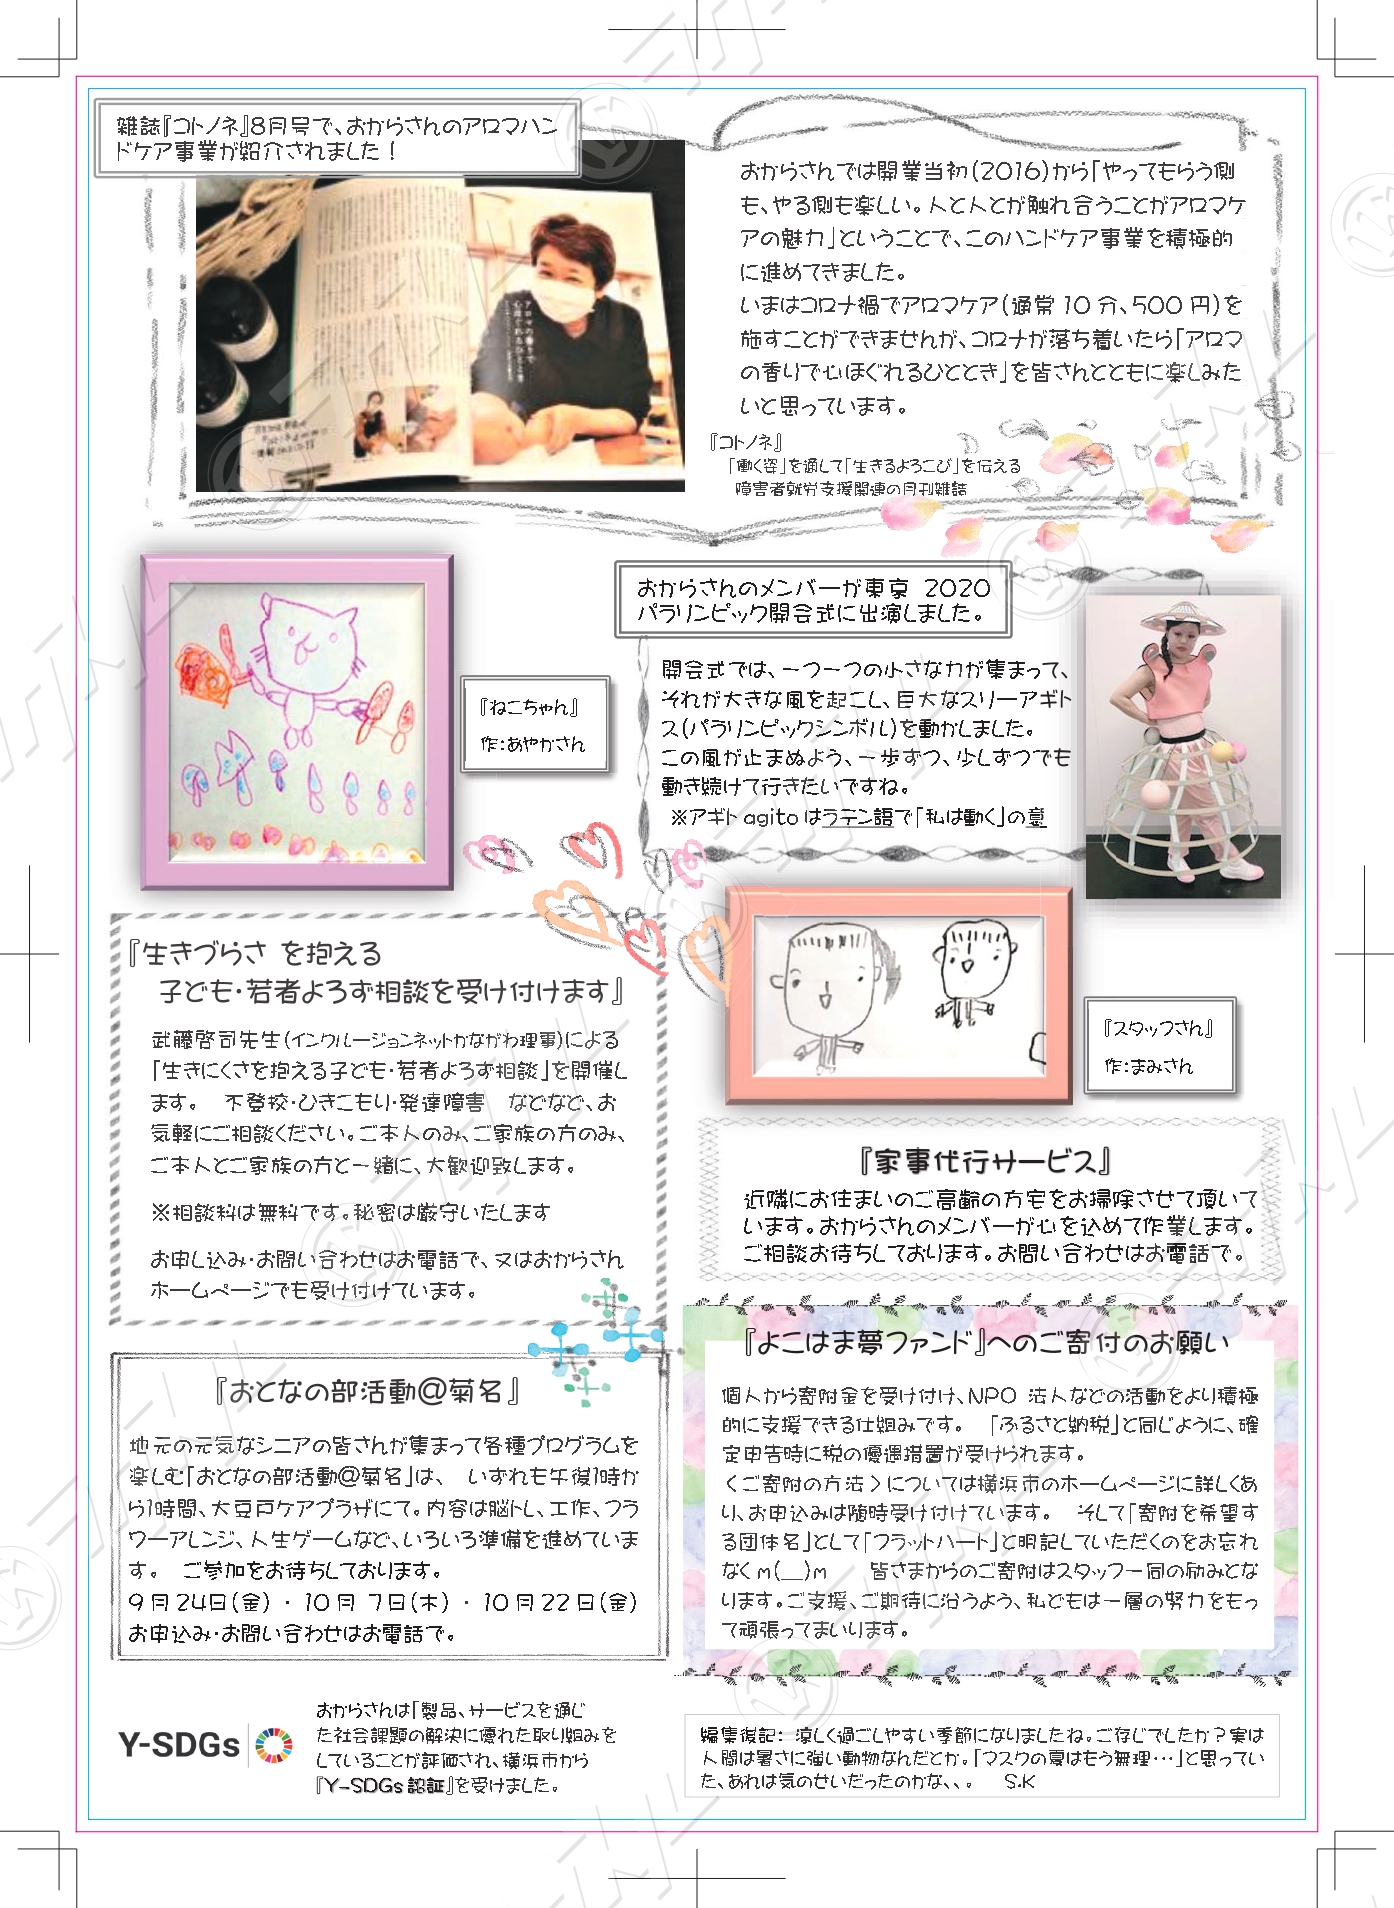 雑誌『コトノネ』8月号で、おからさんのアロマハン
ドケア事業が紹介されました！
おからさんでは開業当初(2016)から「やってもらう側
も、やる側も楽しい。人と人とが触れ合うことがアロマケ
アの魅力」ということで、このハンドケア事業を積極的
に進めてきました。
いまはコロナ禍でアロマケア(通常 10 分、500 円)を
施すことができませんが、コロナが落ち着いたら「アロマ
の香りで心ほぐれるひととき」を皆さんとともに楽しみた
いと思っています。
『コトノネ』
「働く姿」を通して「生きるよろこび」を伝える
障害者就労支援関連の月刊雑誌
おからさんのメンバーが東京 2020
パラリンピック開会式に出演しました。
開会式では、一つ一つの小さな力が集まって、
それが大きな風を起こし、巨大なスリーアギト
ス(パラリンピックシンボル)を動かしました。
この風が止まぬよう、一歩ずつ、少しずつでも
動き続けて行きたいですね。
※アギト agito はラテン語で「私は動く」の意
『ねこちゃん』
作：あやかさん
『生きづらさ を抱える
子ども・若者よろず相談を受け付けます』
武藤啓司先生(インクルージョンネットかながわ理事)による
「生きにくさを抱える子ども・若者よろず相談」を開催し
ます。 不登校・ひきこもり・発達障害 などなど、お
気軽にご相談ください。ご本人のみ、ご家族の方のみ、
ご本人とご家族の方と一緒に、大歓迎致します。
※相談料は無料です。秘密は厳守いたします
お申し込み・お問い合わせはお電話で、又はおからさん
ホームページでも受け付けています。
『スタッフさん』
作：まみさん
『家事代行サービス』
近隣にお住まいのご高齢の方宅をお掃除させて頂いて
います。おからさんのメンバーが心を込めて作業します。
ご相談お待ちしております。お問い合わせはお電話で。
『おとなの部活動＠菊名』
地元の元気なシニアの皆さんが集まって各種プログラムを
楽しむ「おとなの部活動＠菊名」は、 いずれも午後1時か
ら1時間、大豆戸ケアプラザにて。内容は脳トレ、工作、フラ
ワーアレンジ、人生ゲームなど、いろいろ準備を進めていま
す。 ご参加をお待ちしております。
9 月 24日(金) ・ 10 月 7 日(木) ・ 10 月 22 日(金)
お申込み・お問い合わせはお電話で。
『よこはま夢ファンド』へのご寄付のお願い
個人から寄附金を受け付け、NPO 法人などの活動をより積極
的に支援できる仕組みです。 「ふるさと納税」と同じように、確
定申告時に税の優遇措置が受けられます。
＜ご寄附の方法＞については横浜市のホームページに詳しくあ
り、お申込みは随時受け付けています。 そして「寄附を希望す
る団体名」として「フラットハート」と明記していただくのをお忘れ
なく m(__)m 皆さまからのご寄附はスタッフ一同の励みとな
ります。ご支援、ご期待に沿うよう、私どもは一層の努力をもっ
て頑張ってまいります。
Y-SDGs
おからさんは「製品、サービスを通じ
た社会課題の解決に優れた取り組みを
していることが評価され、横浜市から
『Y-SDGs 認証』を受けました。
編集後記： 涼しく過ごしやすい季節になりましたね。ご存じでしたか？実は
人間は暑さに強い動物なんだとか。「マスクの夏はもう無理・・・」と思ってい
た、あれは気のせいだったのかな、、。 S.K